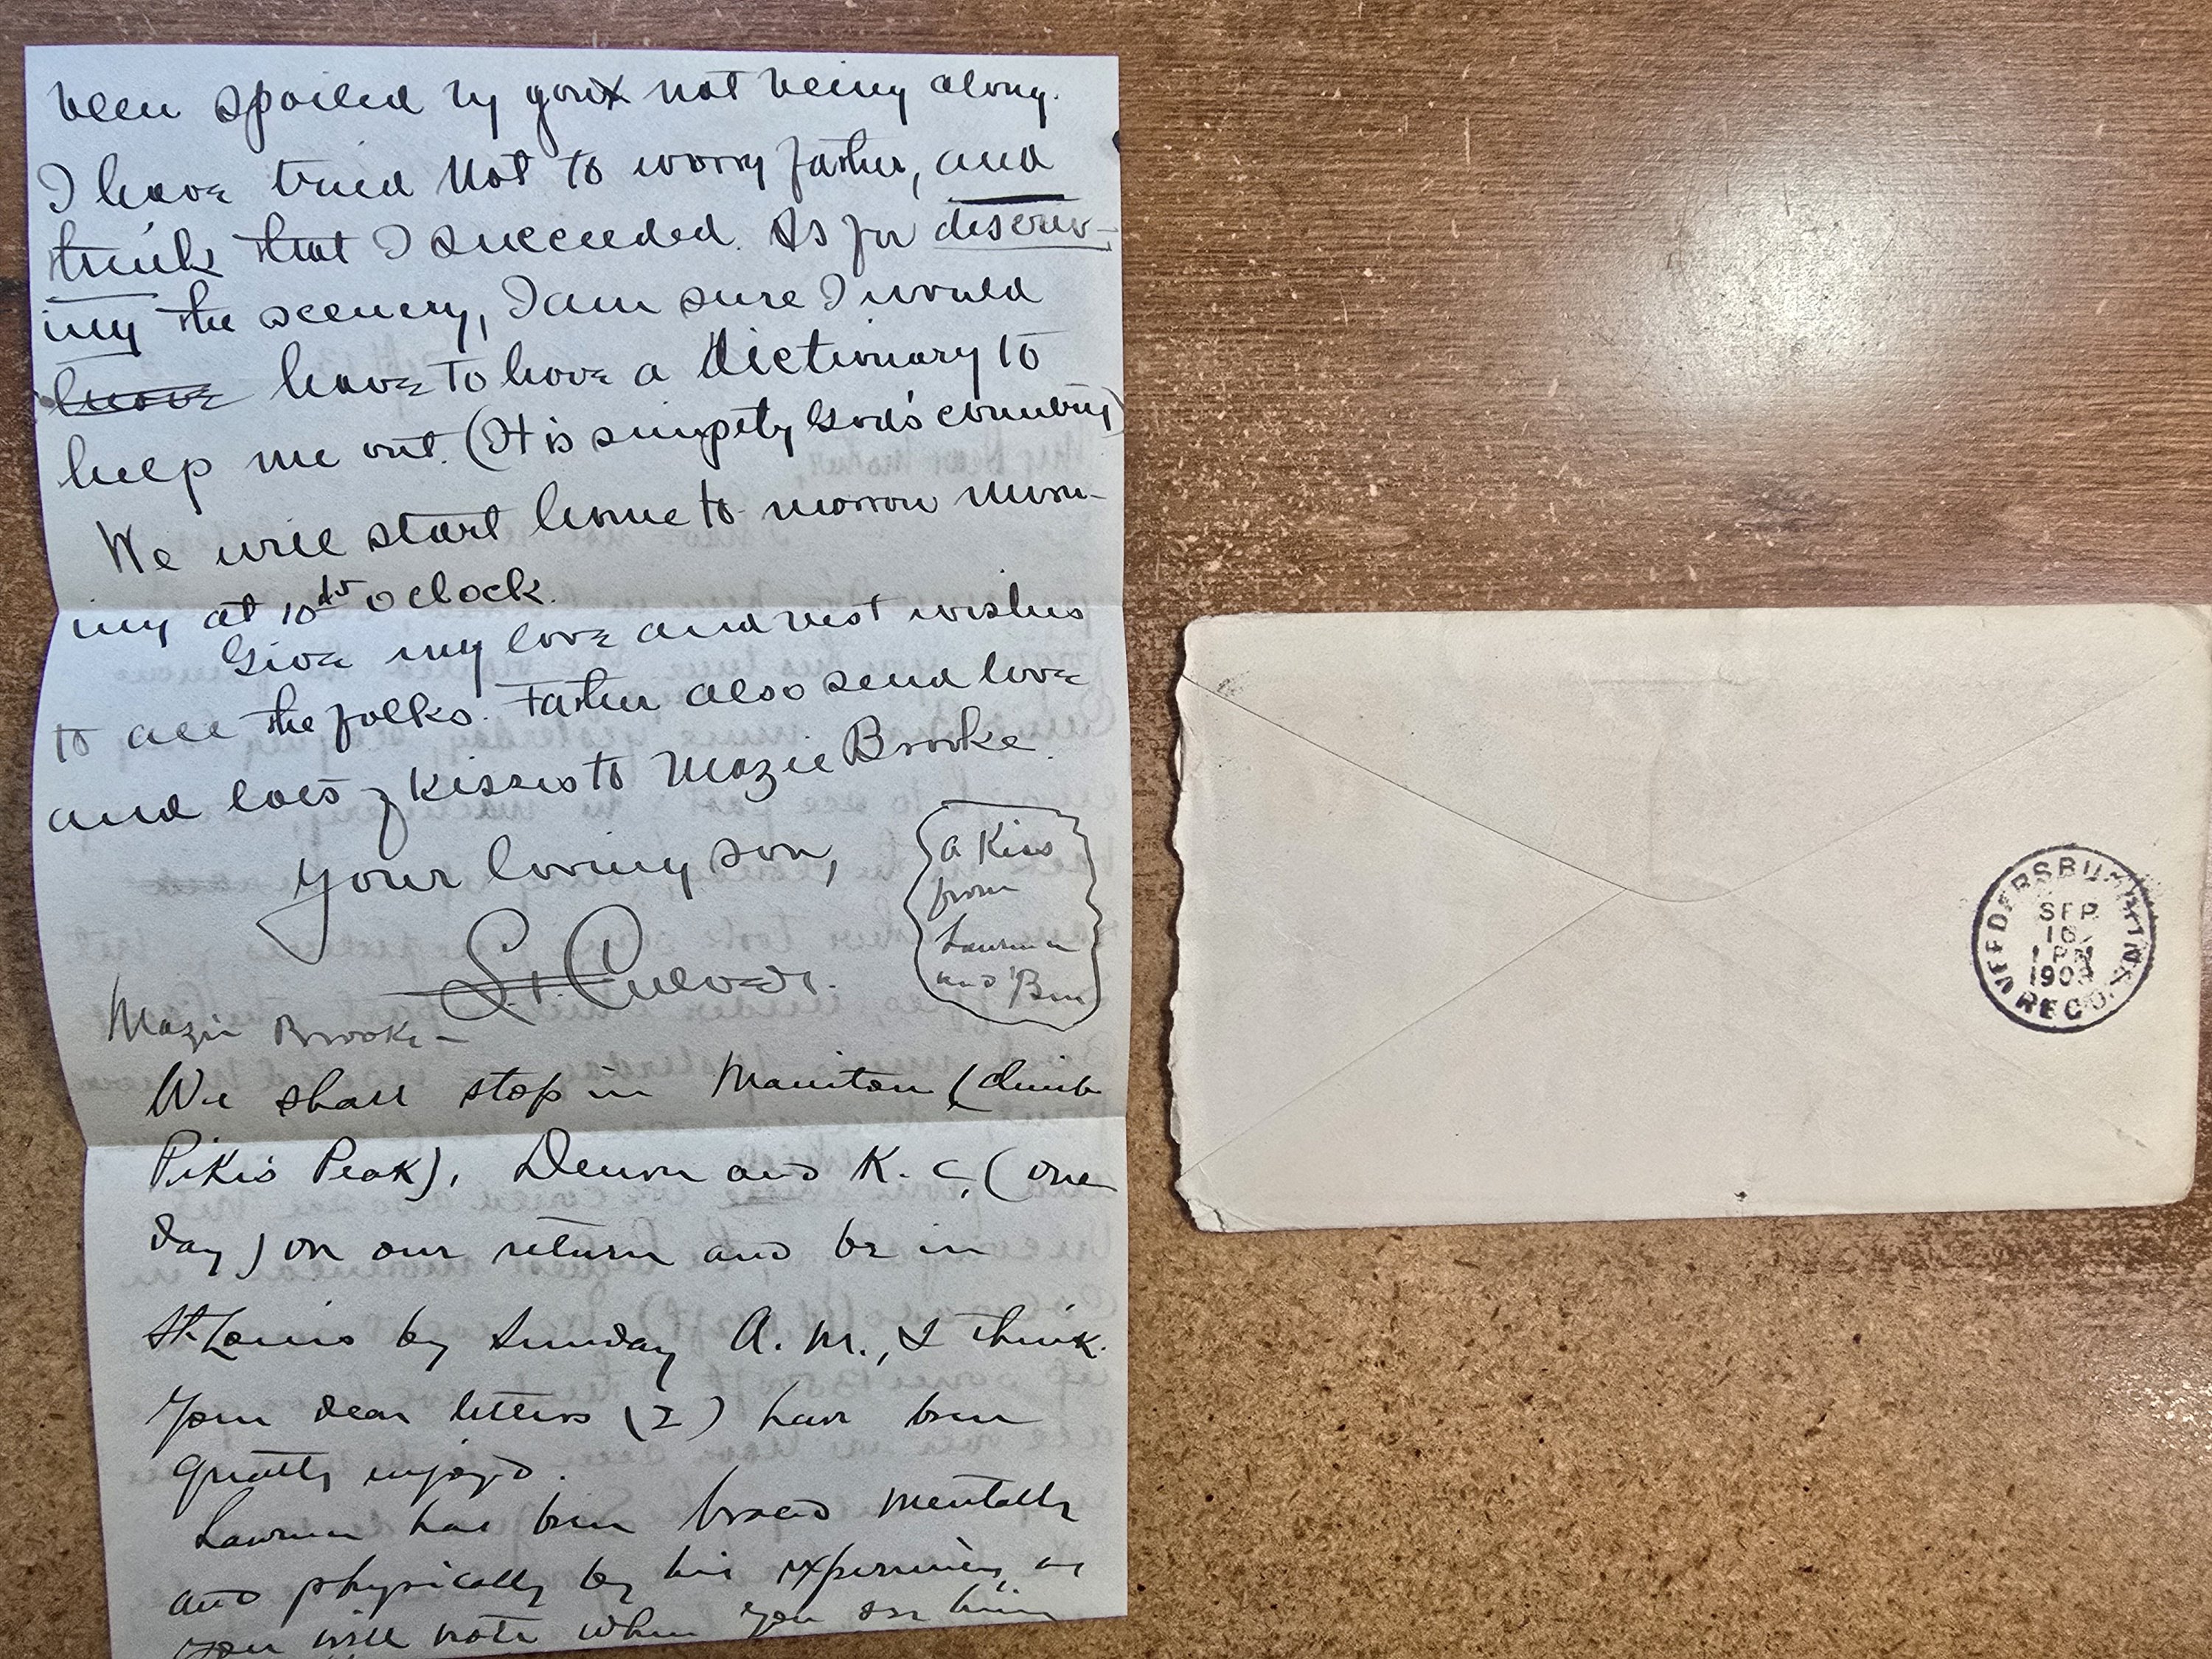 been spoiled by your not being along.
I have tried not to worry father, and
think that I succeeded. As for describ-
ing the scenery, I am sure I would
have have to have a dictionary to
help me out. (It is simpely God's country)
We will start home to-morrow morn-
ing at 10 15 oclock.
Give my love and best wishes
to all the folks. Father also send love
and lots of kisses to Mazie Brooke.
Your loving son,
L. Culver.
a Kiss
from
Lawrence
and Ben
Mazie Brooke-
We shall stop in Manitou (climb
Pike's Peak), Denver and K. C. (one
day) on our return and be in
St. Louis by Sunday A. M., I think.
Your dear letters (2) have been
greatly enjoyed.
Lawrence has been braced mentally
and physically by his experiences, as
you will note when you see him
VEEDERSBURG, IND.
SEP
16
1 PM
190
REC'D.